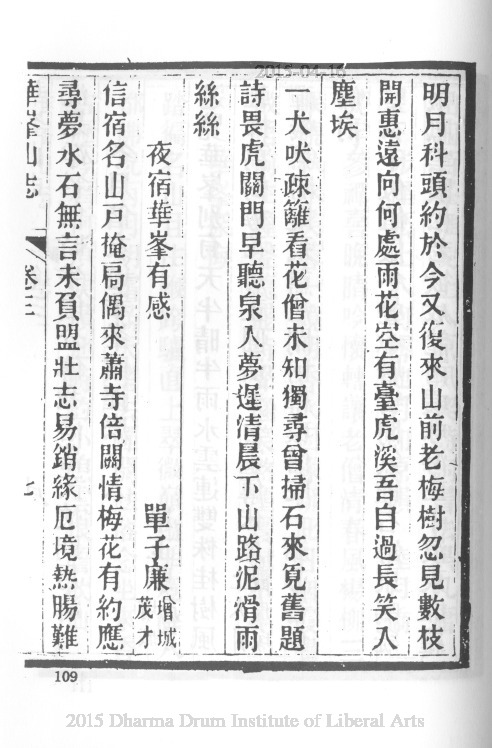 2015-04-16
明月科頭約於今又復來山前老梅樹忽見數枝
開惠遠向何處雨花空有臺虎溪吾自過長笑入
塵埃
一犬吠疎籬看花僧未知獨尋曾掃石來覓舊題
詩畏虎關門早聽泉入夢遲清晨下山路泥滑雨
絲絲
夜宿華峯有感 單子廉 增城茂才
信宿名山戸掩扃偶來蕭寺倍關情梅花有約應
尋夢水石無言未負盟壯志易銷緣厄境熱腸難
華峯山志 卷三 七
109
2015 Dharma Drum Institute of Liberal Arts